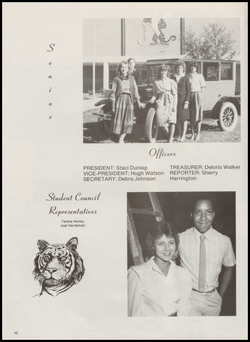 Senior
Officers
PRESIDENT: Staci Dunlap
VICE-PRESIDENT: Hugh Watson
SECRETARY: Debra Johnson
TREASURER: Deloris Walker
REPORTER: Sherry
Harrington
Student Council
Representatives